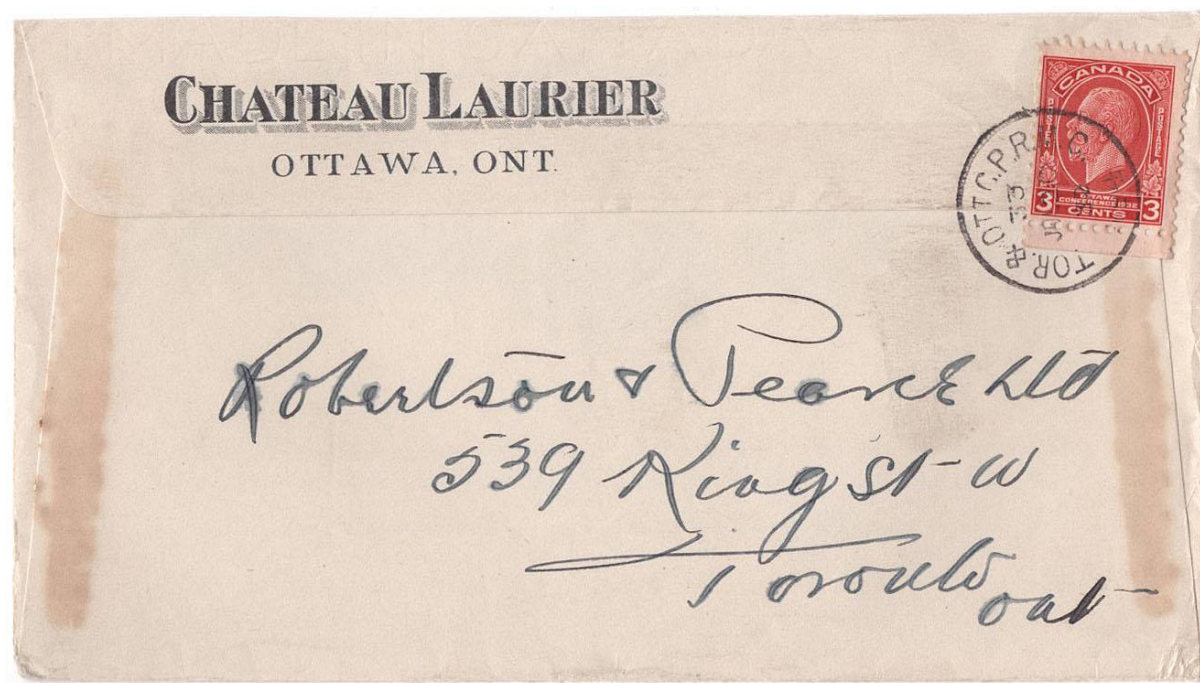 CHATEAU LAURIER
OTTAWA, ONT.
CANADA
POSTAGE
3 OTTAWA CONFERENCE 1932 3
CENTS
TOR. & OTT C.P.R.
33
Robertson & Pearce Ltd
539 King St W
Toronto
Ont